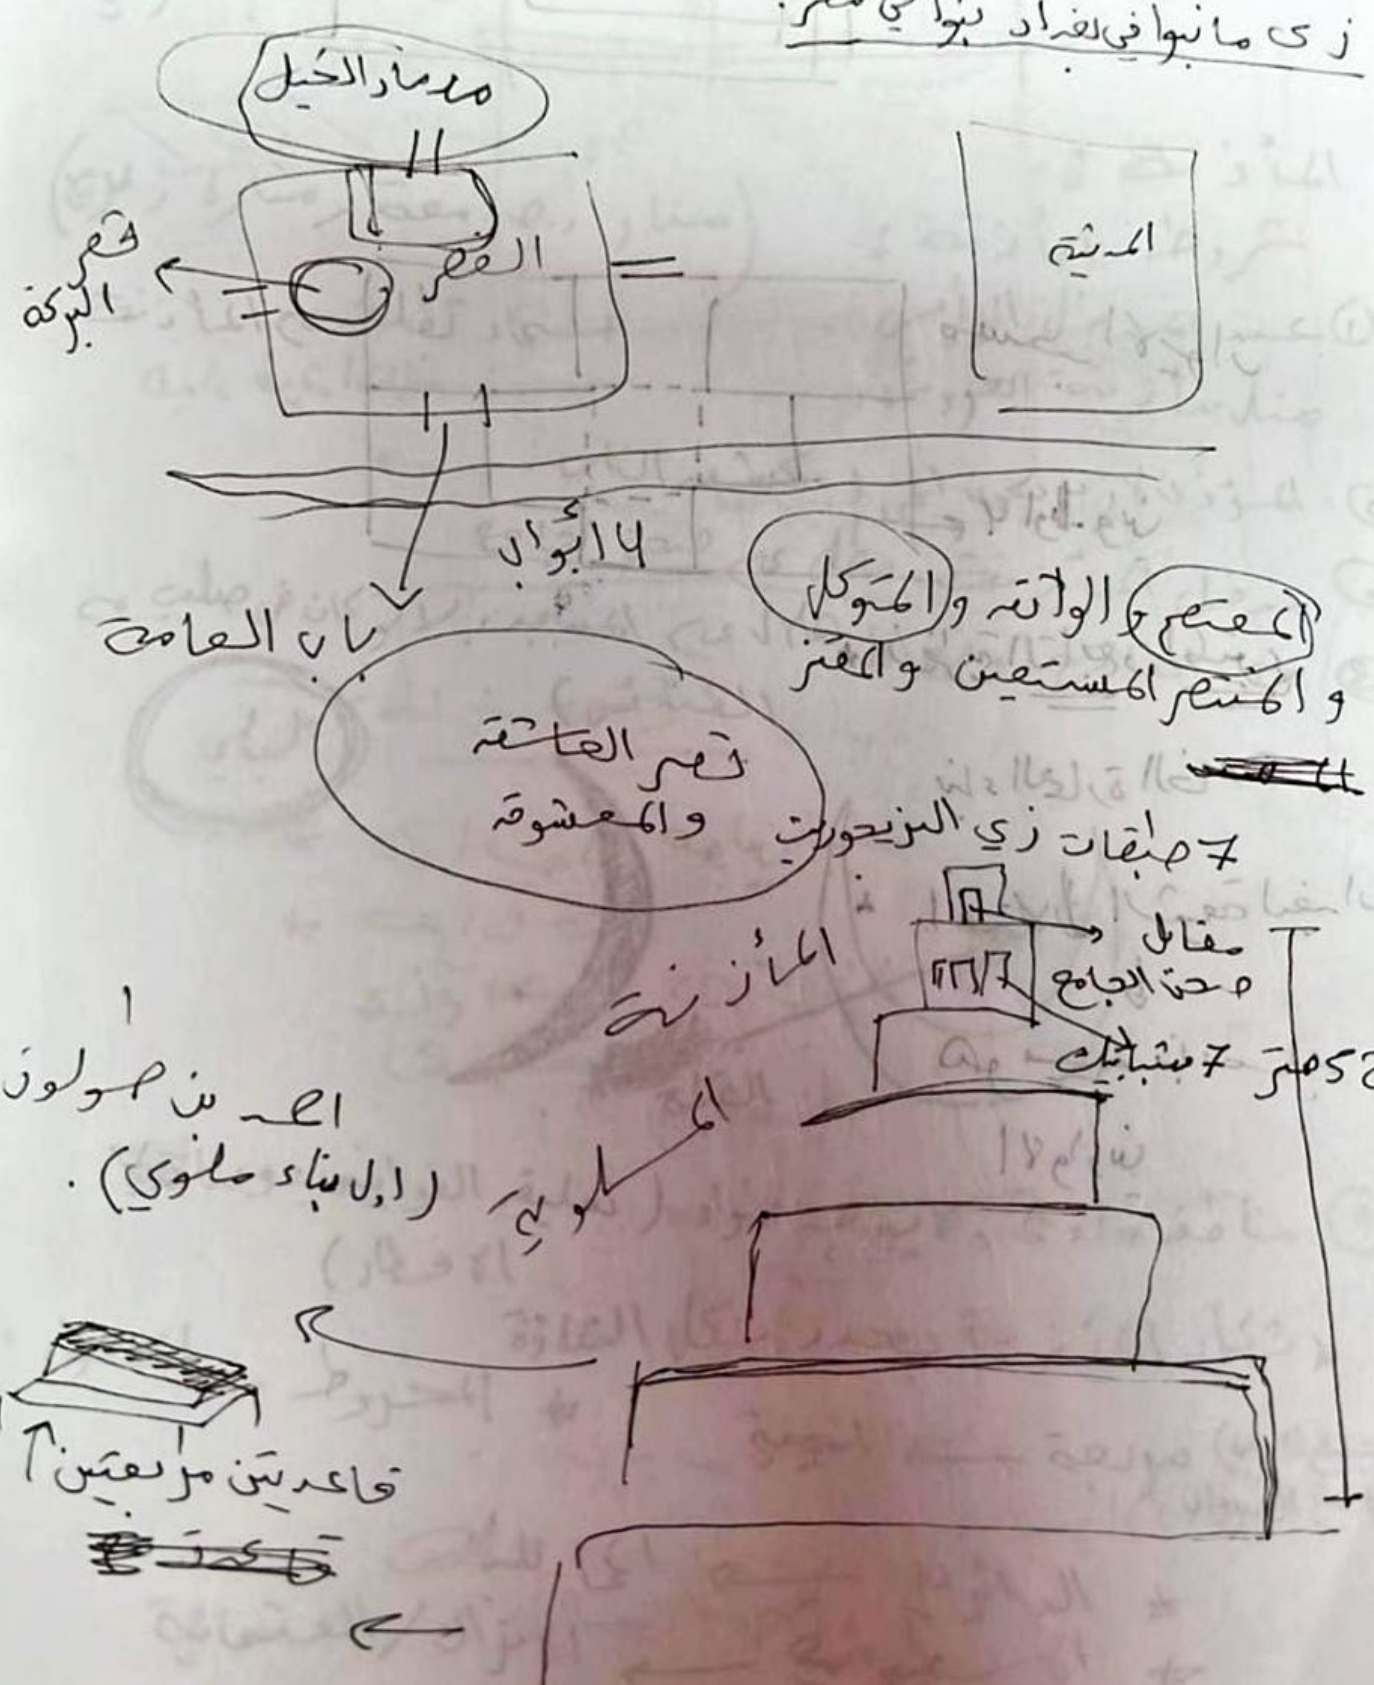 زى ما بنوا في بغداد بنوا في مصر.
مضمار الخيل
المدينة
القصر
قصر
البركة
4 أبواب
باب العامة
المعتصم والواثق والمتوكل
والمنتصر المستعين والمعتز
قصر العاشق
والمعشوق
7 طبقات زي الزيجورات
مقابل
صحن الجامع
7 شبابيك
52 متر
المأذنة
الملوية
احمد بن طولون
(اول بناء ملوي).
قاعدتين مربعتين